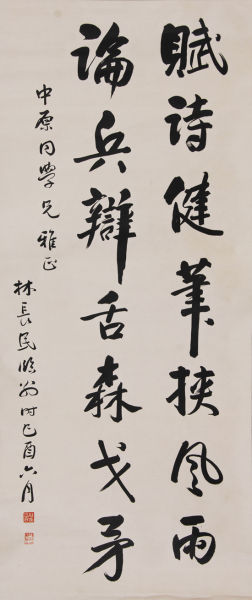 賦詩健筆挾風雨
論兵辯舌森戈矛
中原同學兄雅正
林長民 時己酉六月